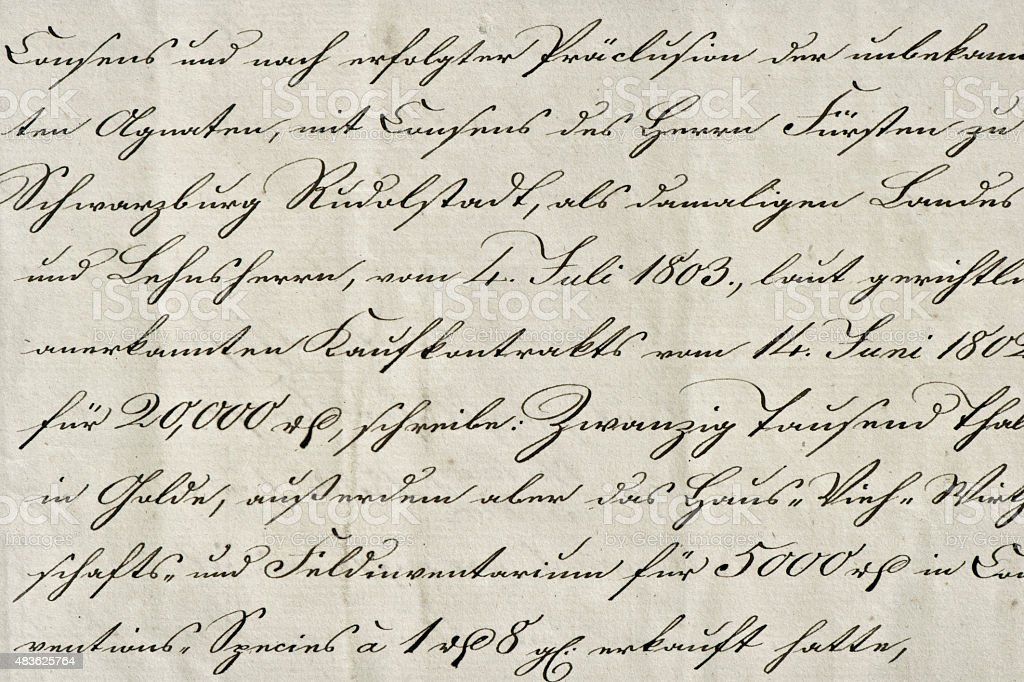 Consens und nach erfolgter Präclusion der unbekann
ten Agnaten, mit Consens des Herrn Fürsten zu
Schwarzburg Rudolstadt, als damaligen Landes
und Lehnsherrn, vom 4. Juli 1803., laut gerichtli
anerkannten Kaufkontrakts vom 14. Juni 1802
für 20,000 rß, schreibe: Zwanzig Tausend Thal
in Golde, außerdem aber das Haus- Vieh- Wirth
schafts- und Feldinventarium für 5000 rß in Con
ventions- Species à 1 rß 8 gl: erkauft hatte,
iStock
by Getty Images
483625764